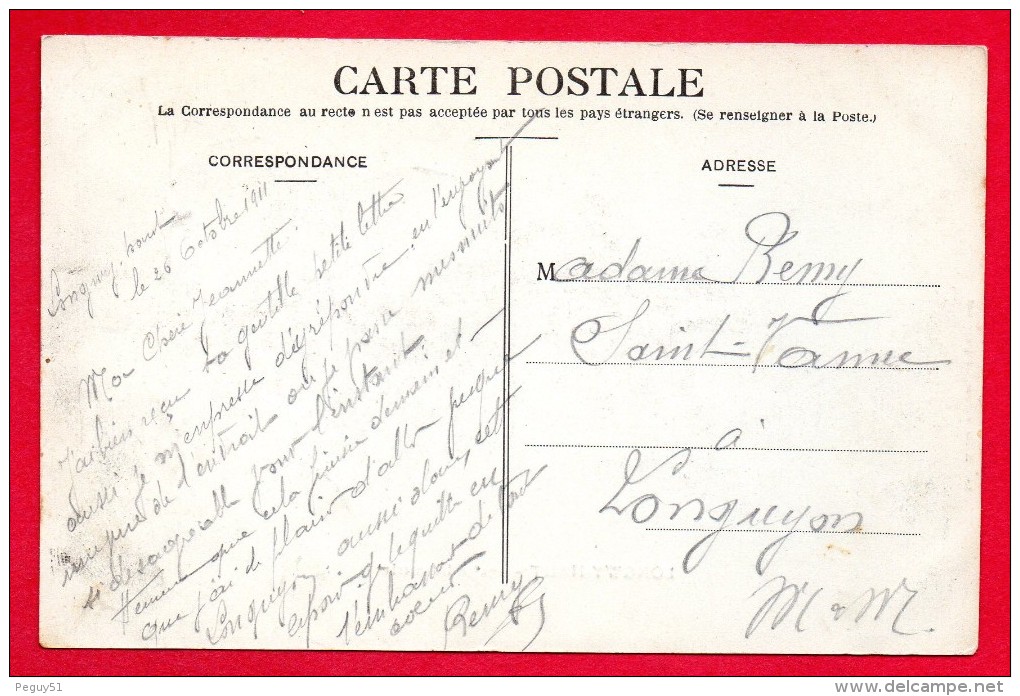 CARTE POSTALE
La Correspondance au recto n'est pas acceptée par tous les pays étrangers. (Se renseigner à la Poste.)
CORRESPONDANCE
Longwy-haut
le 26 Octobre 1911
Ma Chère Jeannette.
J'ai bien reçu ta gentille petite lettre
aussi je m'empresse d'y répondre en t'envoyant
une vue de l'endroit où je passe mes nuits
si désagréable pour l'instant.
que cela finisse demain et
que j'ai de plaisir d'aller jusque
Longuyon aussi donc cet
espoir je te quitte en
t'embrassant de tout
coeur.
Remy
ADRESSE
Madame Remy
Saint-Vanne
à
Longuyon
M & M.
LONGWY-HAUT
Peguy51
www.delcampe.net